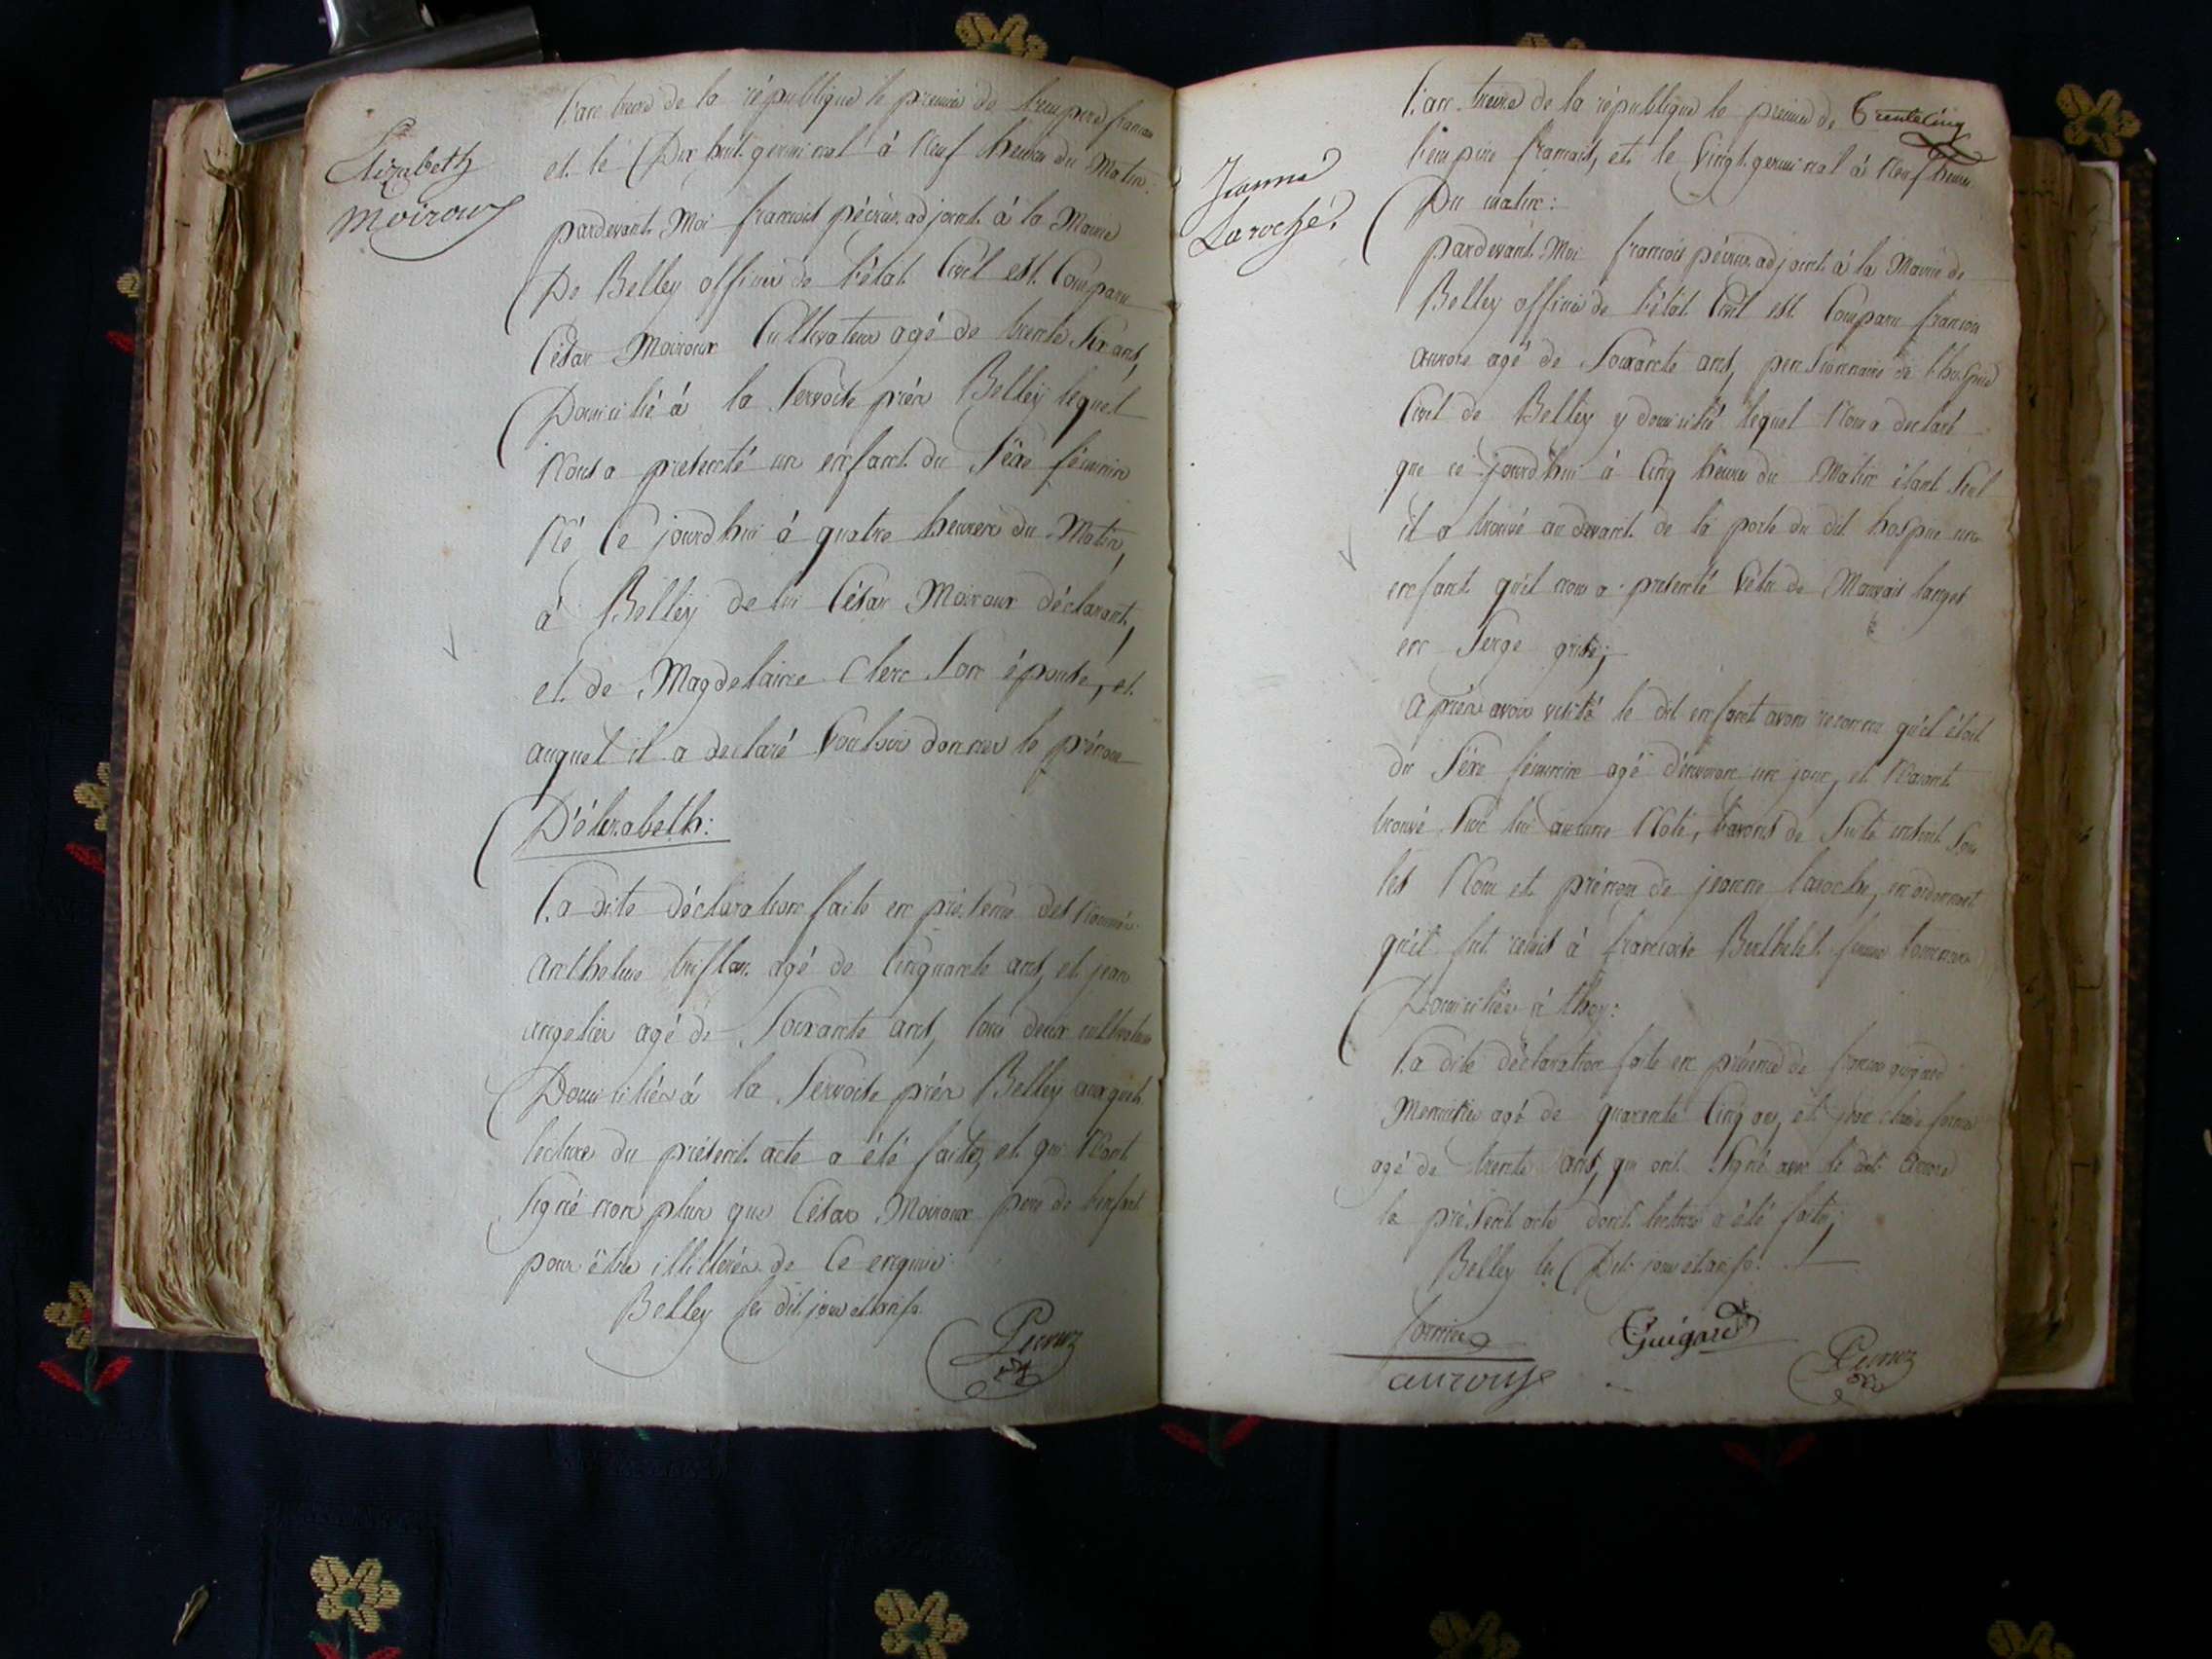 Elizabeth
Moiroux
L'an treize de la république le premier de l'empire francais
et le Dix huit germinal à Neuf heures du Matin:
pardevant Moi francois péciruz adjoint à la Mairie
De Belley officier de l'état Civil est Comparu
César Moiroux Cultivateur agé de trente Six ans,
Domicilié à la Servoite près Belley lequel
Nous a presenté un enfant du Séxe féminin
Né Ce jourd'hui à quatre heures du Matin,
à Belley de lui César Moiroux déclarant,
et de Magdelaine Clerc Son épouse, et
auquel il a declaré Vouloir donner le prénom
D'élizabeth:
La dite déclaration faite en présence des Nommés
anthelme agé de Cinquante ans, et jean
angelier agé de Soixante ans, tous deux cultivateurs
Domiciliés à la Servoite près Belley auxquels
lecture du présent acte a été faite, et qui N'ont
Signé non plus que César Moiroux pere de l'enfant
pour être illitérés de Ce enquis
Belley les dit jour et an
Jeanne
Laroche.
L'an treize de la république le premier de Trentecinq
l'empire francais, et le Vingt germinal à Neuf heures
Du matin:
pardevant Moi francois adjoint à la Mairie de
Belley officier de l'état Civil est Comparu francois
agé de Soixante ans, pensionnaire de l'hospice
Civil de Belley y domicilié lequel Nous a declaré
que ce jourd'hui à Cinq heures du Matin étant Seul
il a trouvé au devant de la porte du dit hospice un
enfant qu'il nous a presenté Vétu de Mauvais langes
en Serge grise;
après avoir visité le dit enfant avons reconnu qu'il étoit
du Séxe féminin agé d'environ un jour, et N'aiant
trouvé Sur lui aucune Note, l'avons de Suite inscrit Sous
les Nom et prénom de jeanne laroche, en ordonnant
qu'il fut remis à francoise Berthelet femme
Domiciliée à thoy:
La dite déclaration faite en présence de
Menuisier agé de quarante Cinq ans, et
agé de trente ans, qui ont Signé avec le dit
le présent acte dont lecture a été faite;
Belley les Dit jour et an
Guigard